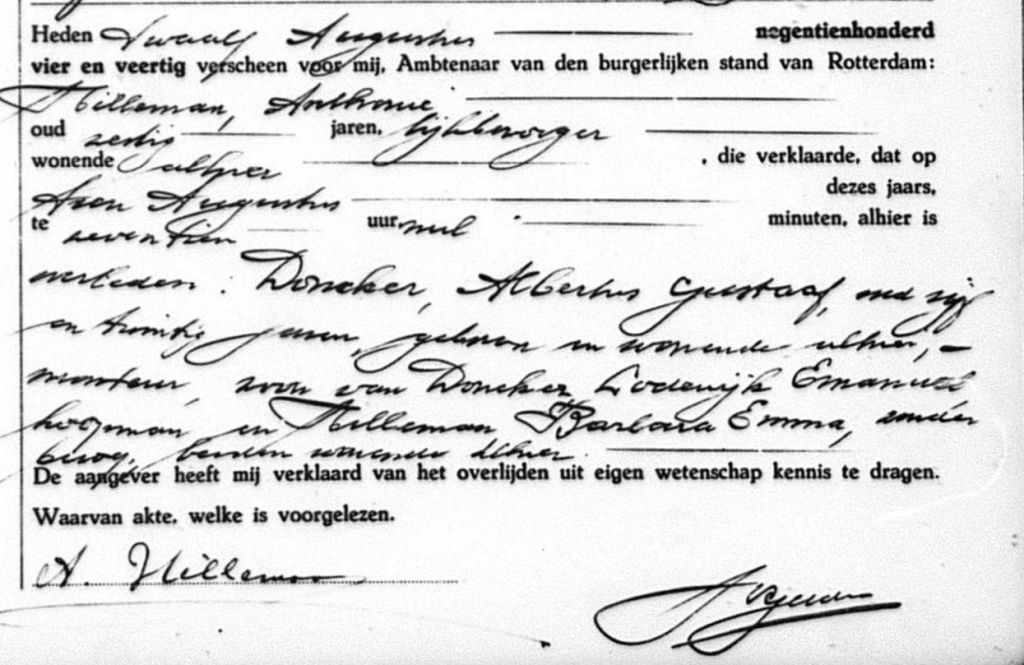 Heden Twaalf Augustus negentienhonderd
vier en veertig verscheen voor mij, Ambtenaar van den burgerlijken stand van Rotterdam:
Hilleman, Anthonie
oud zestig jaren, lijkbezorger
wonende alhier, die verklaarde, dat op
tien Augustus dezes jaars,
te zeventien uur nul minuten, alhier is
overleden: Doncker, Albertus Gustaaf, oud vijf
en twintig jaren, geboren en wonende alhier,
monteur, zoon van Doncker Lodewijk Emanuel
koopman, en Hilleman Barbara Emma, zonder
beroep, beiden wonende alhier.
De aangever heeft mij verklaard van het overlijden uit eigen wetenschap kennis te dragen.
Waarvan akte, welke is voorgelezen.
A. Hilleman